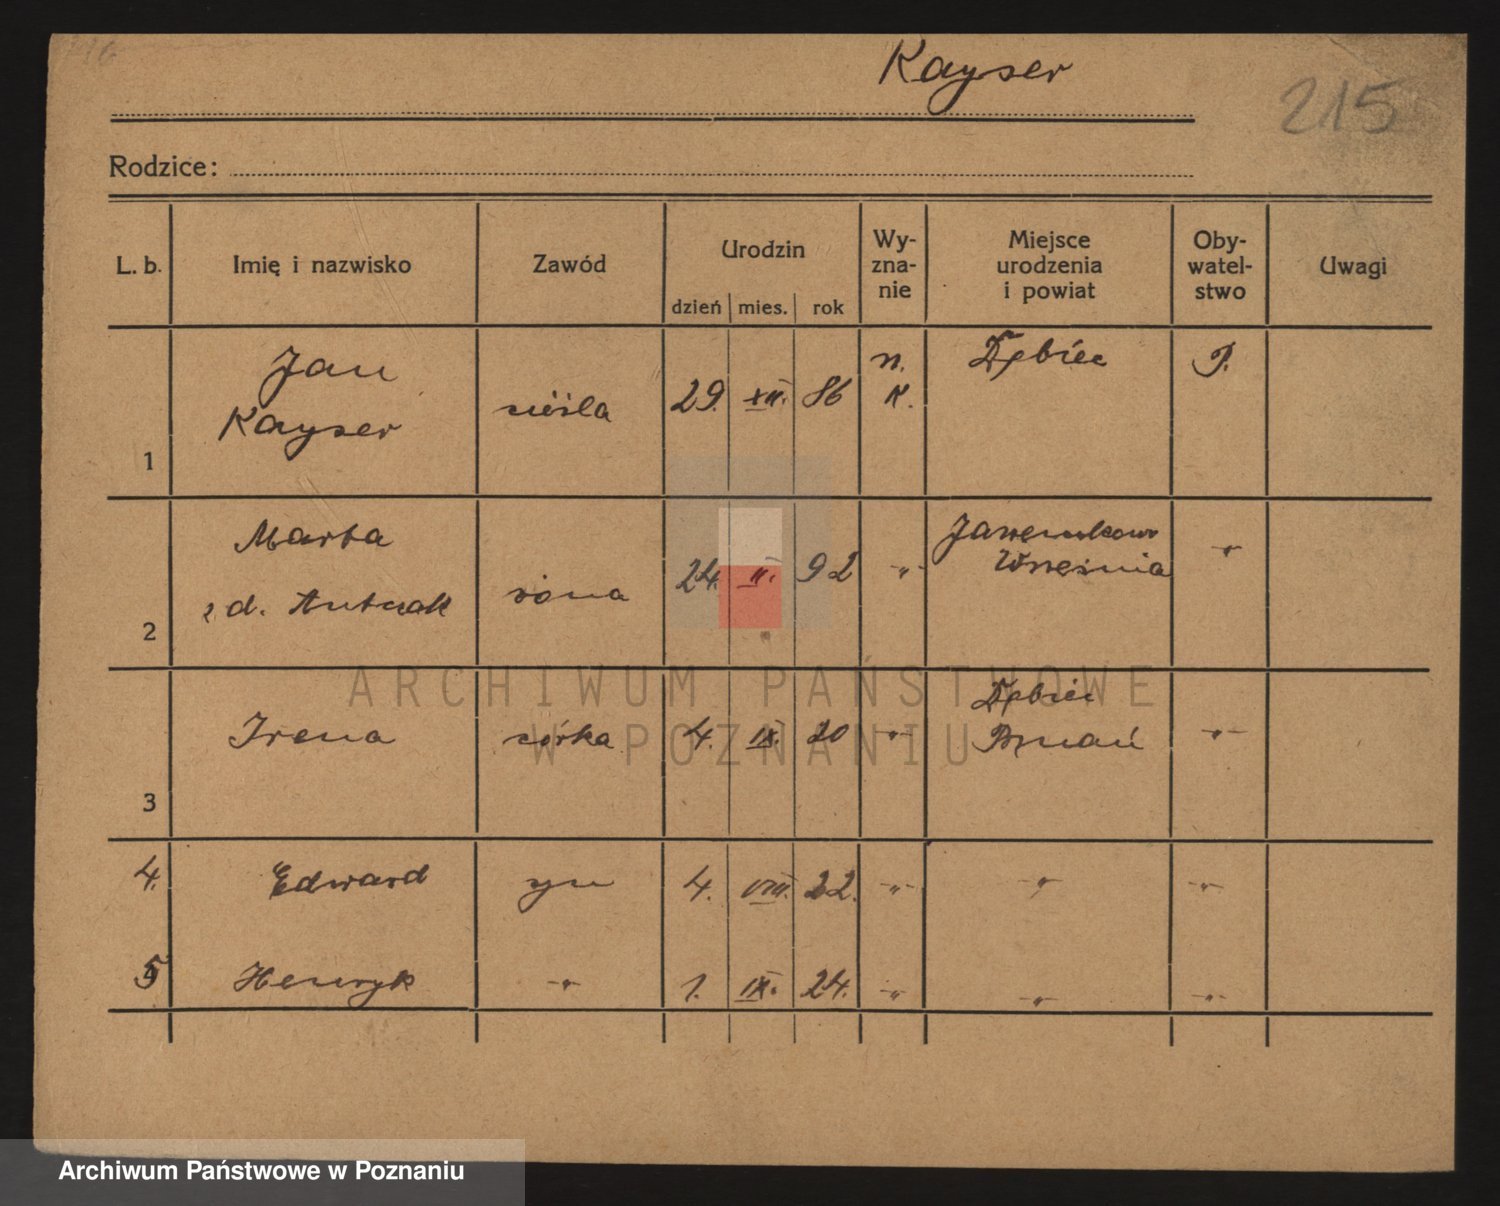 Kayser
215
Rodzice:
L. b. Imię i nazwisko Zawód Urodzin dzień mies. rok Wy-zna-nie Miejsce urodzenia i powiat Oby-watel-stwo Uwagi
1 Jan Kayser cieśla 29. XII. 86 r. K. Dębiec P.
2 Marta z d. Antczak żona 24. II. 92 -"- Września -"-
3 Irena córka 4. IX. 20 -"- Dębiec Poznań -"-
4. Edward syn 4. VIII. 22. -"- -"- -"-
5 Henryk -"- 1. IX. 24. -"- -"- -"-
ARCHIWUM PAŃSTWOWE
W POZNANIU
Archiwum Państwowe w Poznaniu